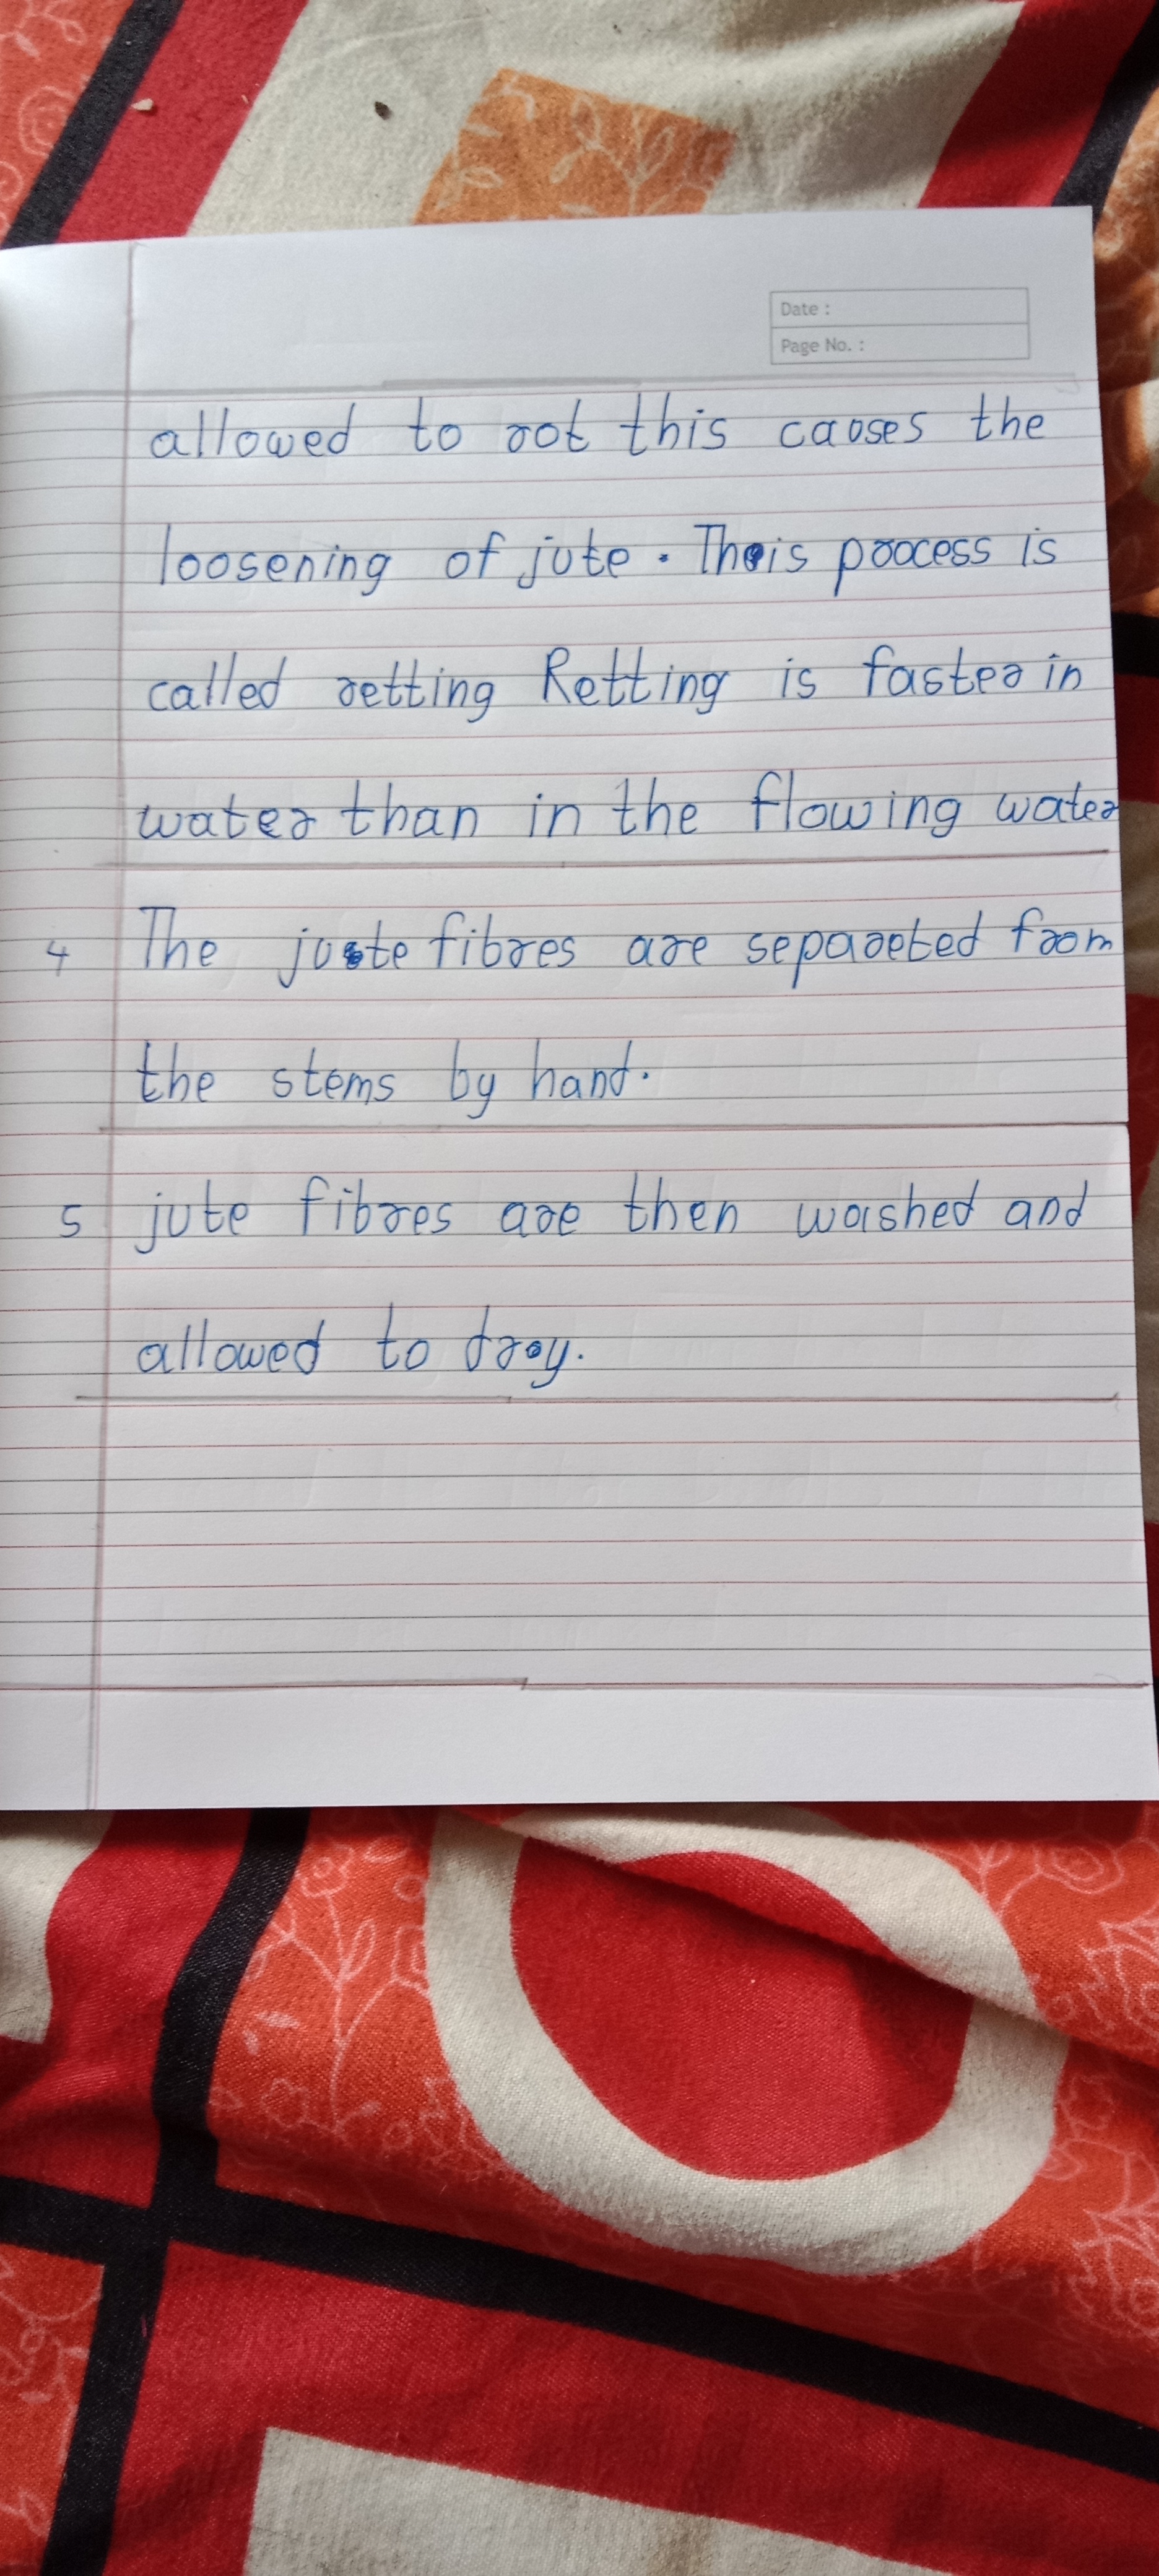 Date :
Page No. :
allowed to rot this causes the
loosening of jute . This process is
called retting Retting is faster in
water than in the flowing water
4 The jute fibres are separeted from
the stems by hand.
5 jute fibres are then washed and
allowed to dry.